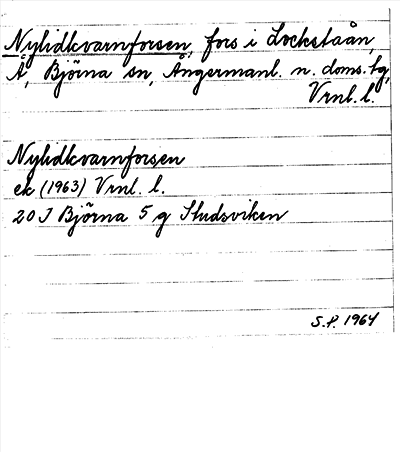 Nylidkvarnforsen, fors i Lockstaån,
Å, Björna sn, Ångermanl. n. doms. hg,
Vrnl. l.
Nylidkvarnforsen
ek (1963) Vrnl. l.
20 I Björna 5 g Studsviken
S.P. 1964